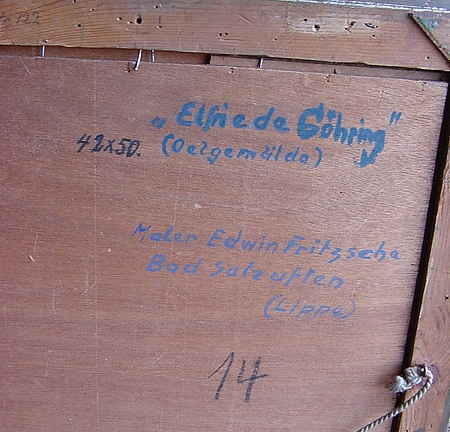 „Elfriede Göhring“
42x50. (Oelgemälde)
Maler Edwin Fritzsche
Bad Salzuflen
(Lippe)
14